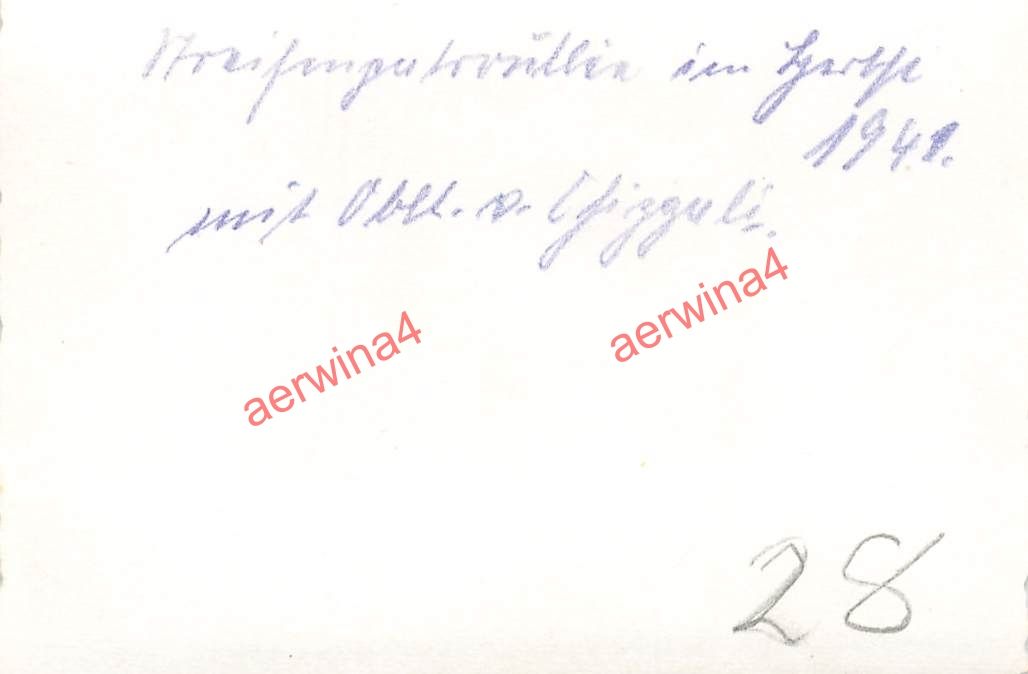 Streifenpatrouille im
1941.
mit Oblt. v.
aerwina4 aerwina4
28